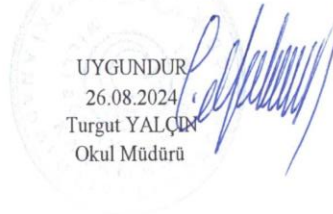 UYGUNDUR
26.08.2024
Turgut YALÇIN
Okul Müdürü